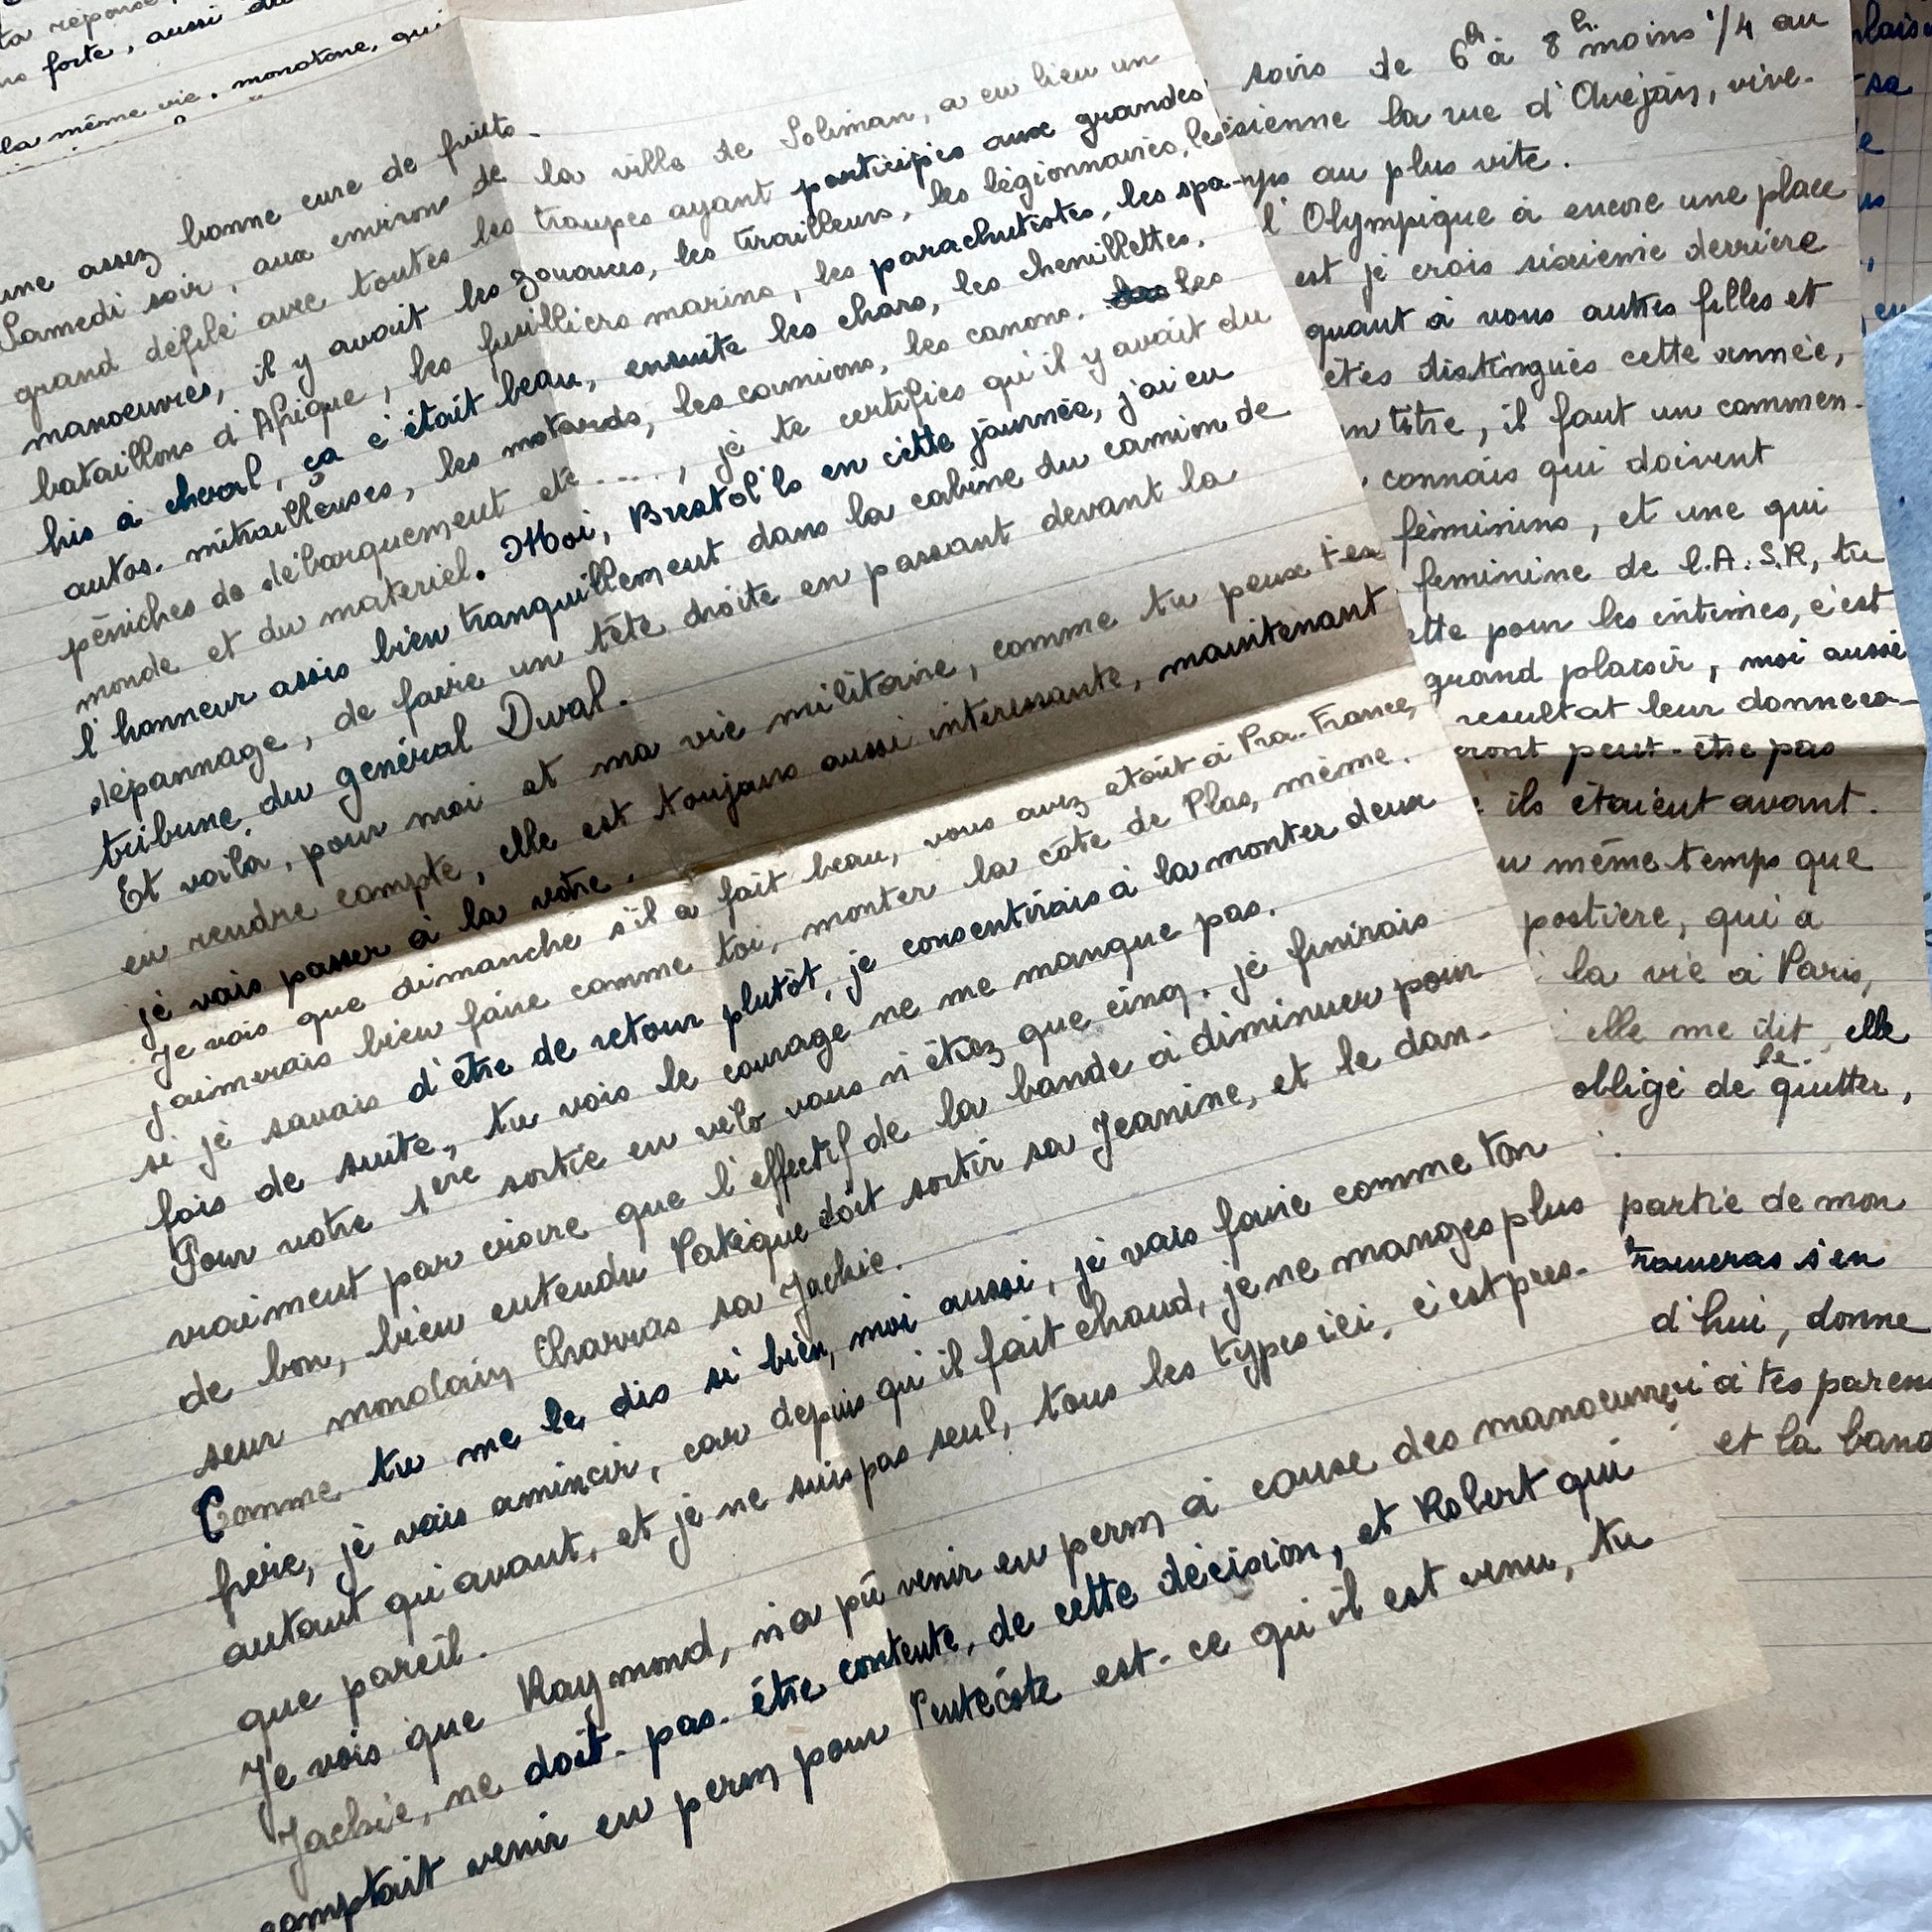 ta réponse
forte, aussi
la même vie, monotone, qui
une assez bonne cure de fruits.
Samedi soir, aux environs de la ville de Soliman, a eu lieu un
grand défilé avec toutes les troupes ayant participés aux grandes
manoeuvres, il y avait les zouaves, les tirailleurs, les légionnaires, les
bataillons d'Afrique, les fusilliers marins, les parachutistes, les spa-
his à cheval, ça c'était beau, ensuite les chars, les chenillettes,
autos. mitrailleuses, les motards, les camions, les canons. les
péniches de débarquement etc...., je te certifies qu'il y avait du
monde et du materiel. Moi, Breatol'ls en cette journée, j'ai eu
l'honneur assis bien tranquillement dans la cabine du camion de
dépannage, de faire un tête droite en passant devant la
tribune du général Duval.
Et voila, pour moi et ma vie militaire, comme tu peux t'en
en rendre compte, elle est toujours aussi interessante, maintenant
je vais passer à la votre.
Je vois que dimanche s'il a fait beau, vous avez etait à Pra-France,
j'aimerais bien faire comme toi, monter la côte de Plas, même.
si je savais d'être de retour plutôt, je consentirais à la monter deux
fois de suite, tu vois le courage ne me manque pas.
Pour votre 1ere sortie en vélo vous n'étiez que cinq. je finirais
vraiment par croire que l'effectif de la bande a diminuer pour
de bon, bien entendu Patèque doit sortir sa Jeanine, et le dan-
seur mondain Charras sa Jackie.
Comme tu me le dis si bien, moi aussi, je vais faire comme ton
frère, je vais amincir, car depuis qu'il fait chaud, je ne manges plus
autant qu'avant, et je ne suis pas seul, tous les types ici, c'est pres-
que pareil.
Je vois que Raymond, n'a pû venir en perm à cause des manoeuvres
Jackie, ne doit-pas. être contente, de cette décision, et Robert qui
comptait venir en perm pour Pentecôte est-ce qu'il est venu, tu
soirs de 6h à 8h moins 1/4 au
ésienne la rue d'Avéjan, vive-
au plus vite.
l'Olympique à encore une place
est je crois sixieme derrière
quant à vous autres filles et
êtes distingués cette année,
un titre, il faut un commen-
connais qui doivent
féminins, et une qui
feminine de l.A.S.R, tu
ette pour les intimes, c'est
grand plaisir, moi aussi
resultat leur donnera-
eront peut-être pas
ils étaient avant.
même temps que
postière, qui a
la vie à Paris,
elle me dit, elle
obligé de le quitter,
partie de mon
trouveras s'en
d'hui, donne
à tes parents
et la band